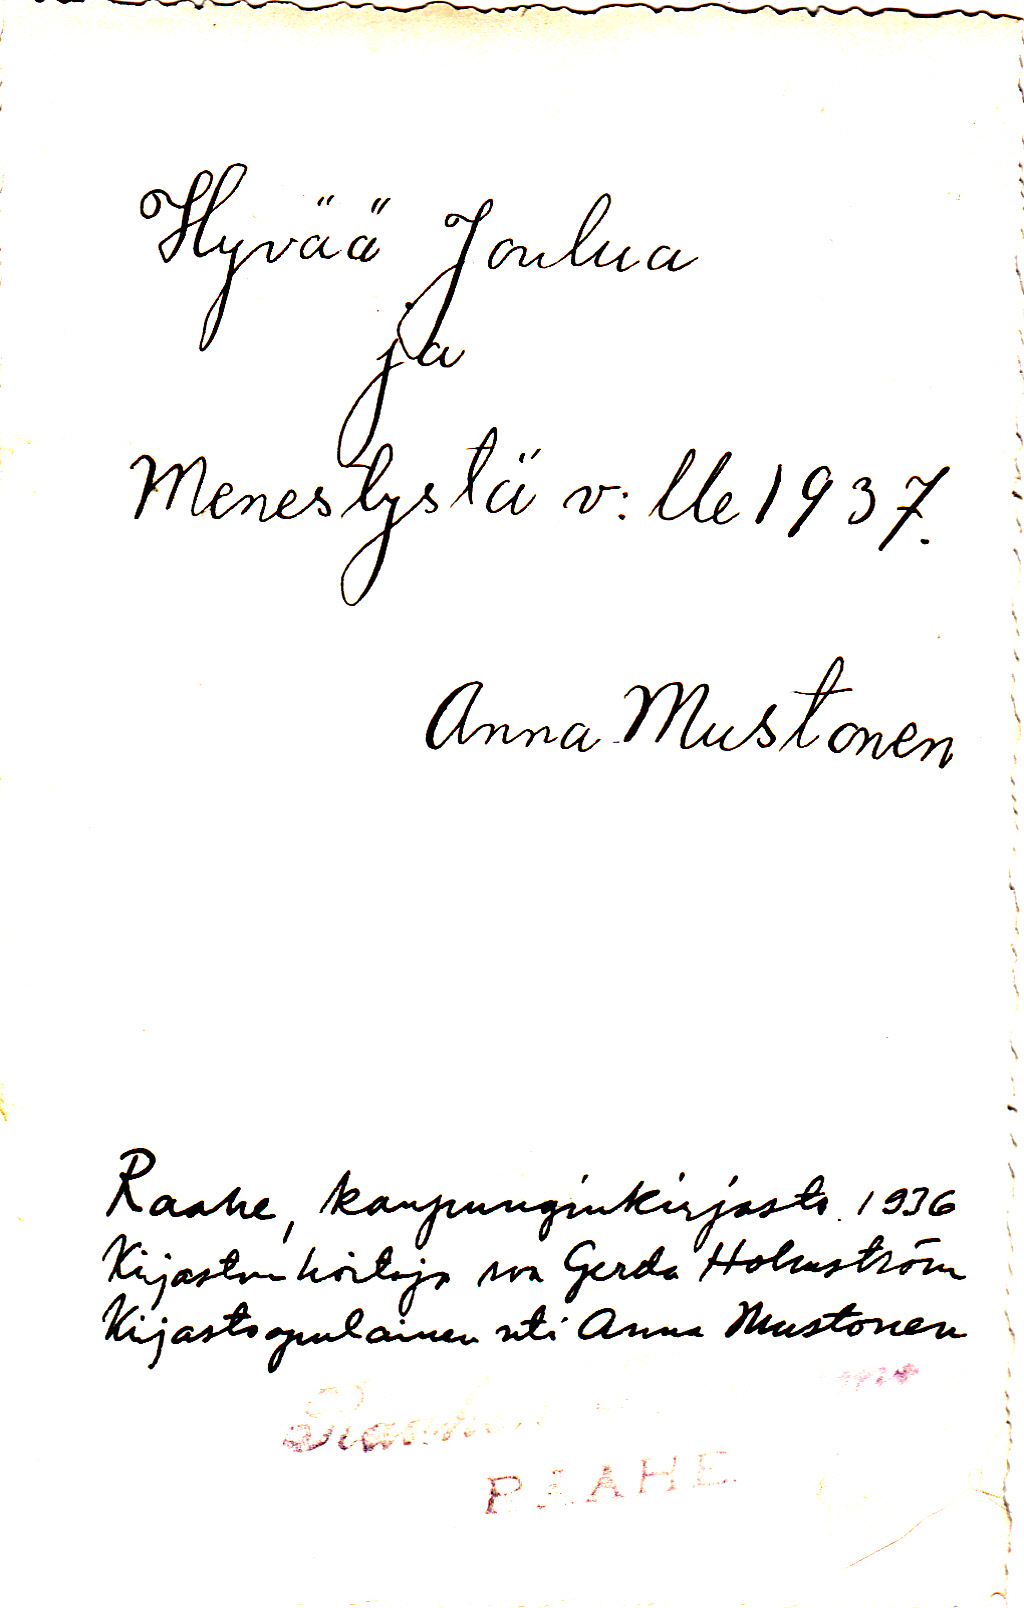 Hyvää Joulua
ja
Menestystä v:lle 1937.
Anna Mustonen
Raahe, kaupunginkirjasto 1936
Kirjastonhoitaja rva Gerda Holmström
Kirjastoapulainen nti Anna Mustonen
RAAHE